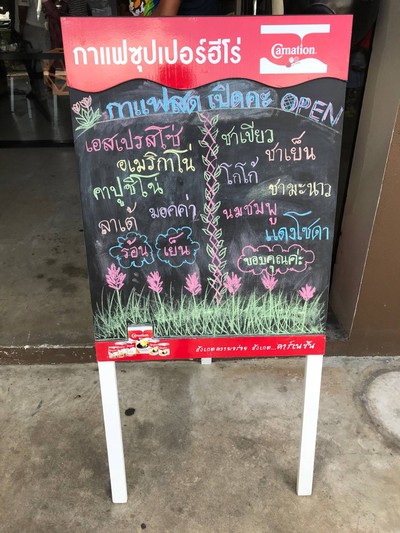 กาแฟซุปเปอร์ฮีโร่
Carnation
กาแฟสด เปิดค่ะ OPEN
เอสเปรสโซ่
อเมริกาโน่
คาปูชิโน่
มอคค่า
ลาเต้
ร้อน เย็น
ชาเขียว
ชาเย็น
โกโก้
ชามะนาว
นมชมพู
แดงโซดา
ขอบคุณค่ะ
สังเกตความอร่อย สังเกต...คาร์เนชัน